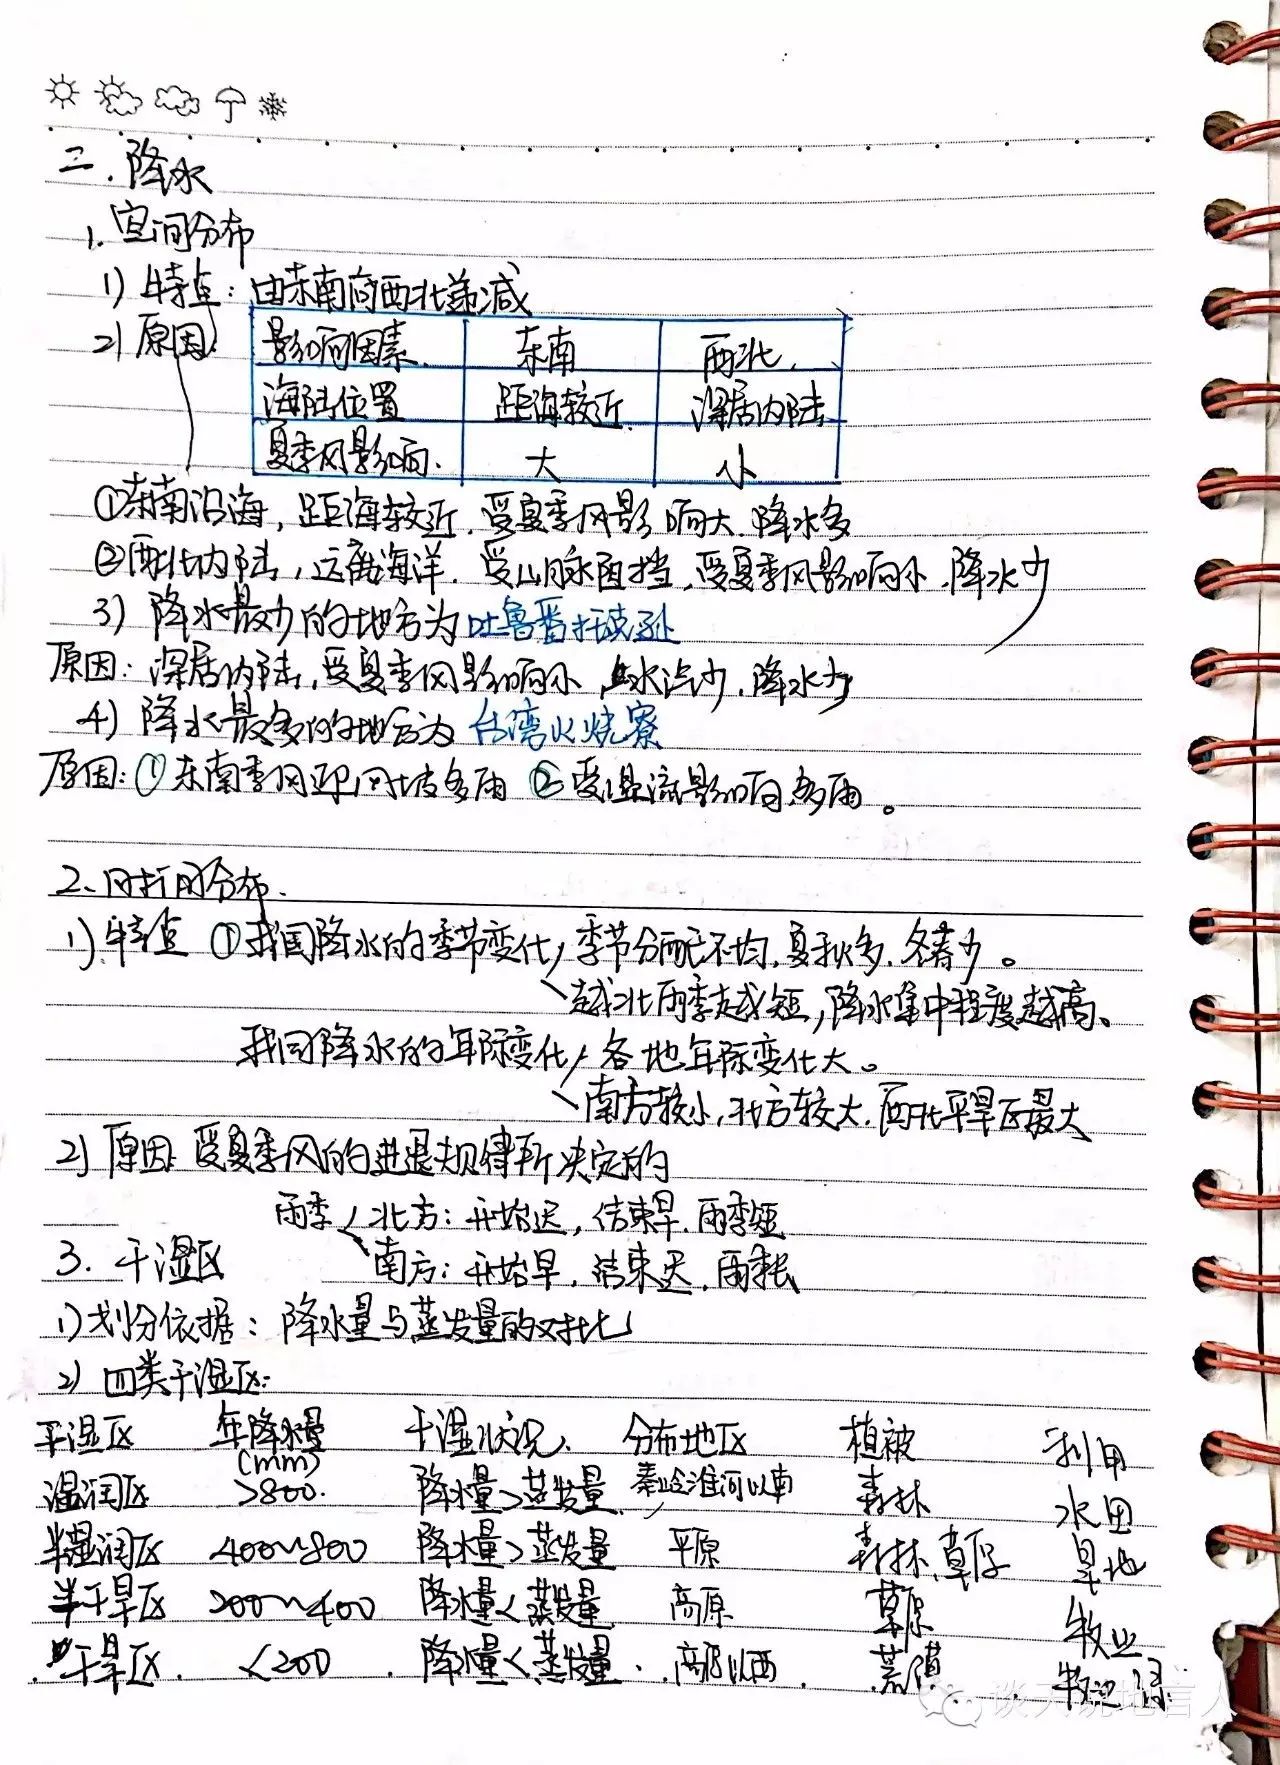 二.降水
1.空间分布
1)特点:由东南向西北递减
2)原因:
影响因素 东南 西北
海陆位置 距海较近 深居内陆
夏季风影响 大 小
①东南沿海,距海较近,受夏季风影响大,降水多
②西北内陆,远离海洋,受山脉阻挡,受夏季风影响小,降水少
3)降水最少的地方为吐鲁番托克逊
原因:深居内陆,受夏季风影响小,水汽少,降水少
4)降水最多的地方为台湾火烧寮
原因:①东南季风迎风坡多雨 ②受暖流影响多雨。
2、时间分布
1)特点 ①我国降水的季节变化 季节分配不均,夏秋多,冬春少。
越北雨季越短,降水集中程度越高、
我国降水的年际变化 各地年际变化大。
南方较小,北方较大,西北干旱区最大
2)原因:受夏季风的进退规律所决定的
雨季 北方:开始迟,结束早,雨季短
南方:开始早,结束迟,雨季长
3.干湿区
1)划分依据:降水量与蒸发量的对比
2)四类干湿区:
干湿区 年降水量(mm) 干湿状况 分布地区 植被 利用
湿润区 >800 降水量>蒸发量 秦岭淮河以南 森林 水田
半湿润区 400~800 降水量>蒸发量 平原 森林、草原 旱地
半干旱区 200~400 降水量<蒸发量 高原 草原 牧业
干旱区 <200 降水量<蒸发量 高原以西 荒漠 牧业
谈天说地言人